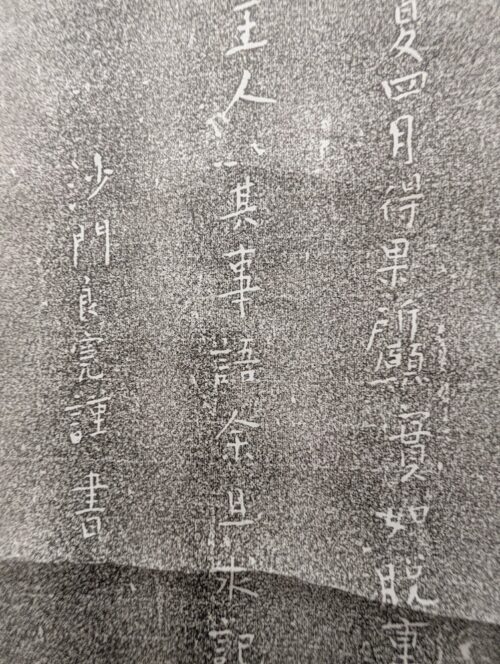 夏四月得果所願實如脱重
主人以其事語余且求記
沙門良寛謹書